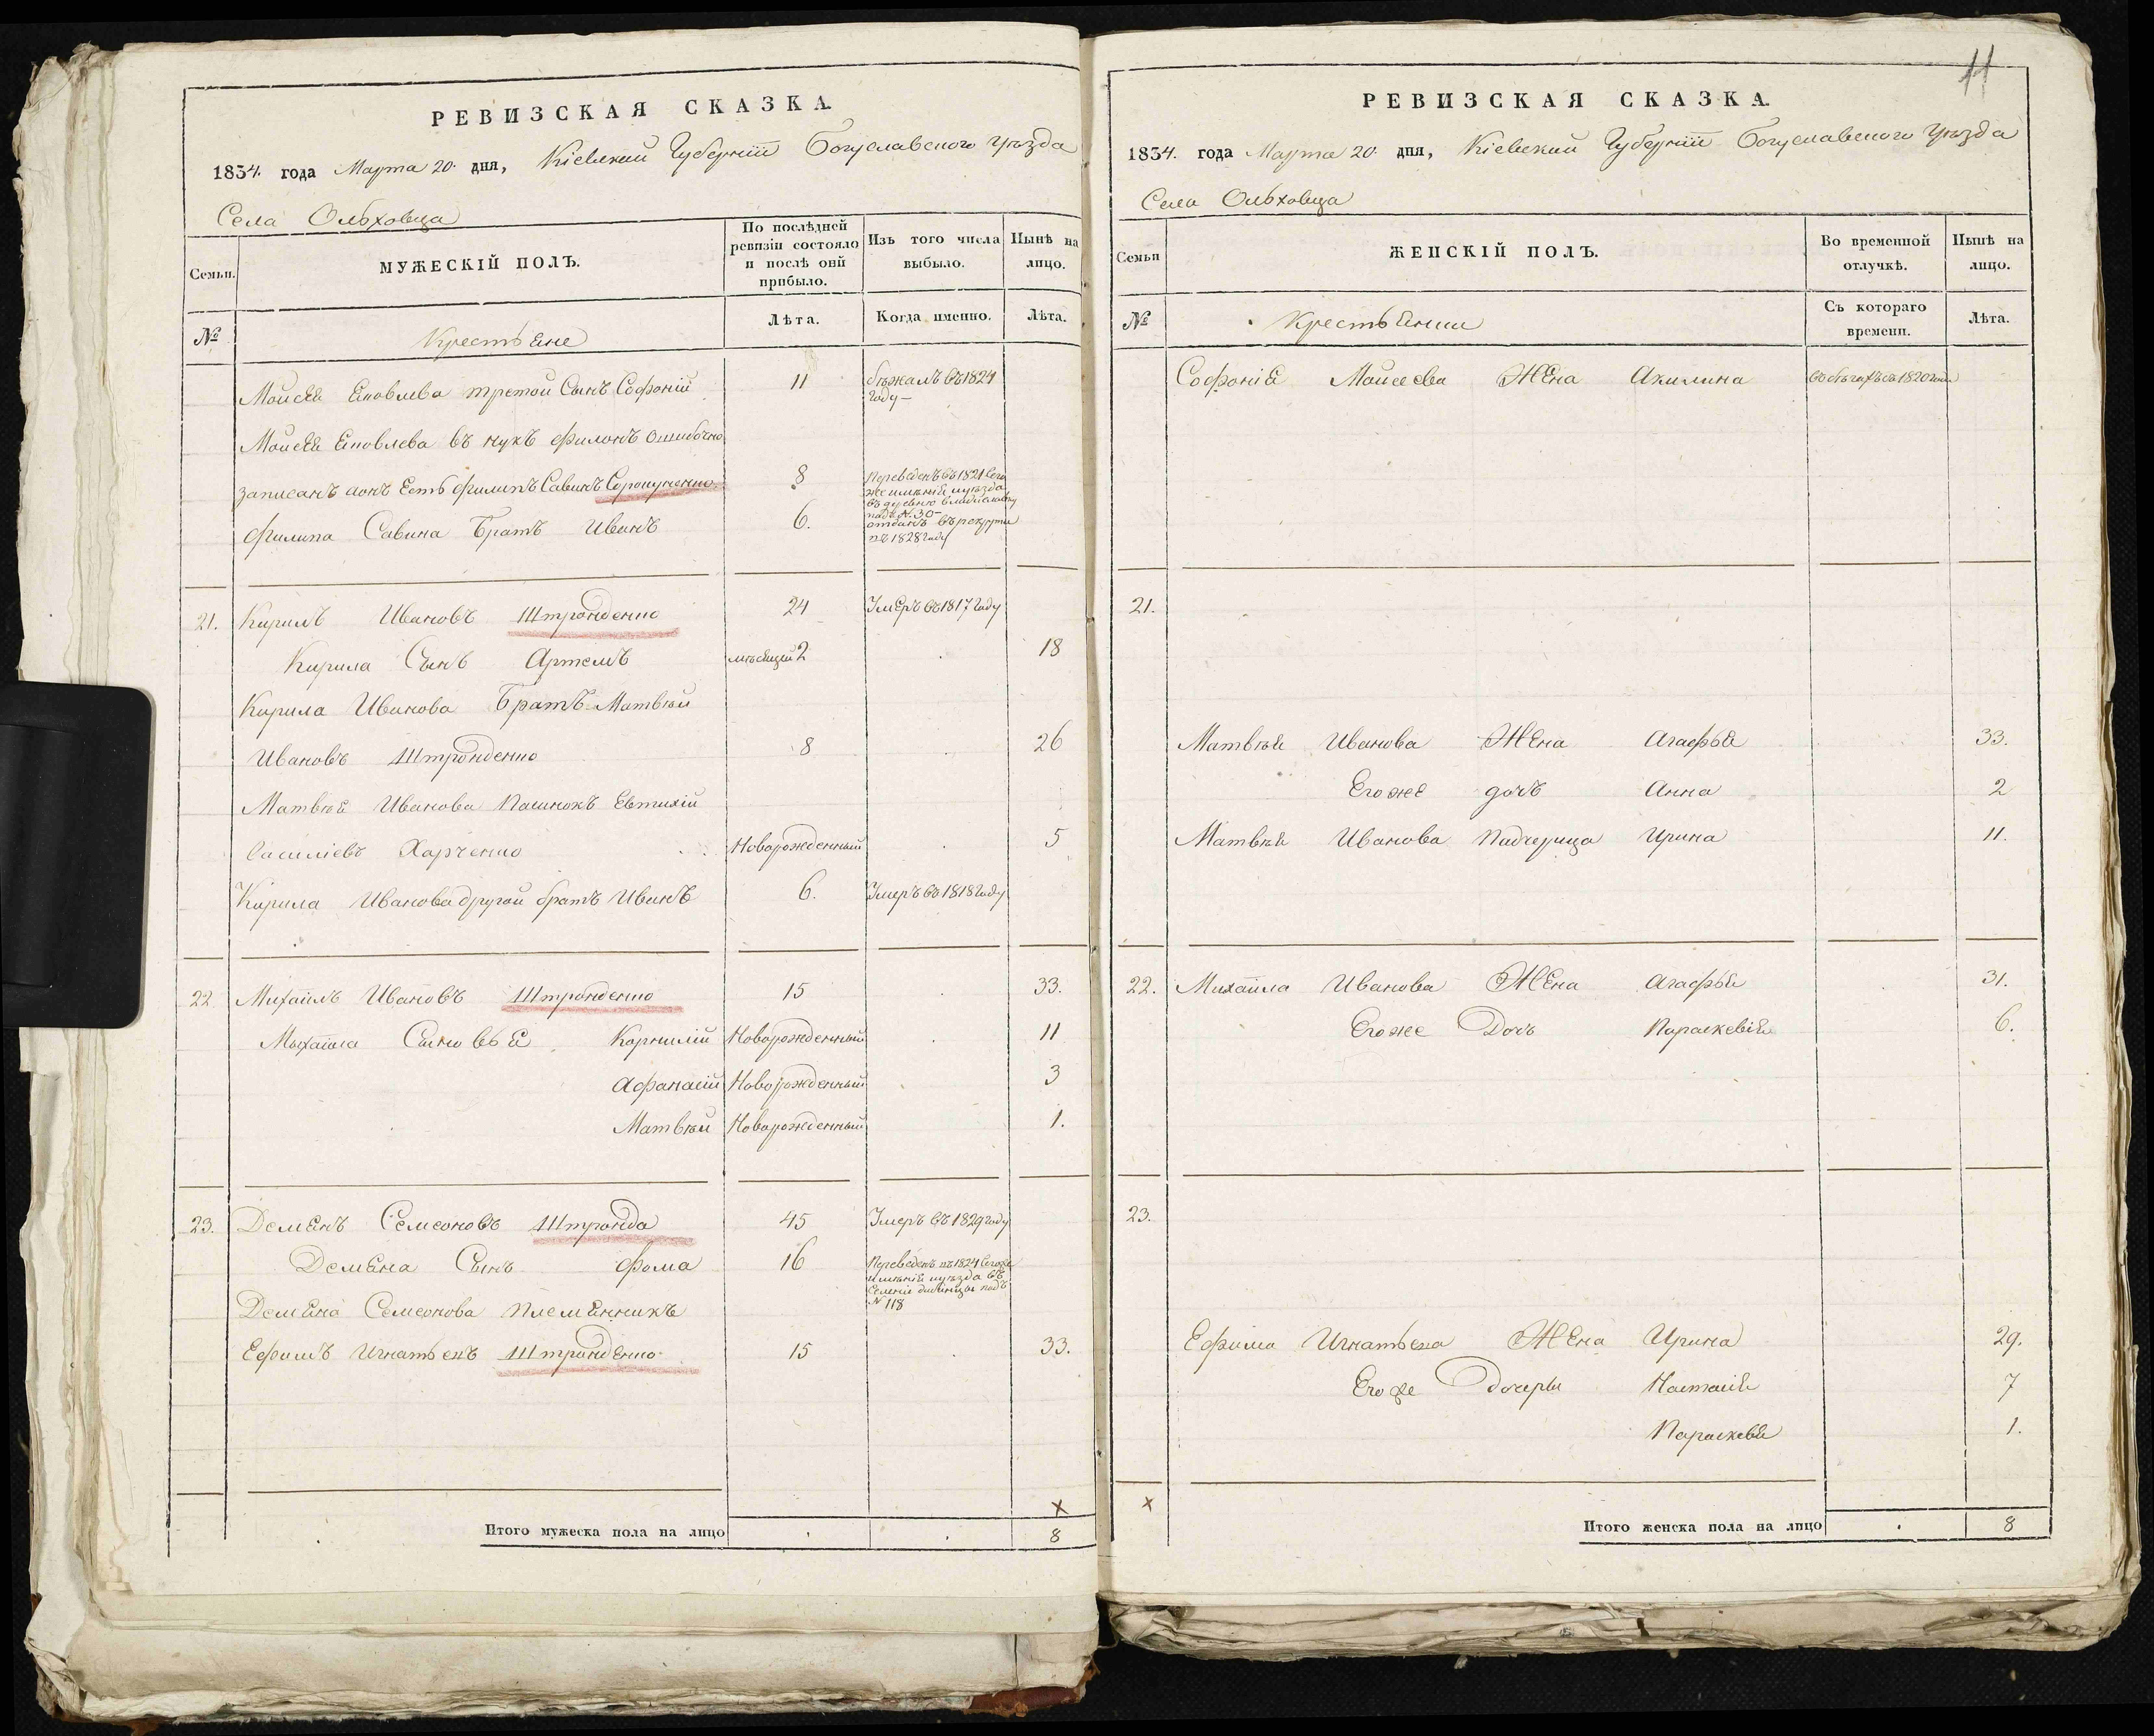 РЕВИЗСКАЯ СКАЗКА.
1834. года Марта 20. дня, Кіевской Губерніи Богуславского Уѣзда
Села Ольховца
Семьи.
МУЖЕСКІЙ ПОЛЪ.
По послѣдней ревизіи состояло и послѣ оній прибыло.
Изъ того числа выбыло.
Нынѣ на лицо.
№
Крестьяне
Лѣта.
Когда именно.
Лѣта.
Моисея Яковлева третой Сынъ Софоній 11 бѣжалъ въ 1824
году
Моисея Яковлева внукъ Филонъ ошибочно
записанъ а онъ есть Филипъ Савинъ 8 Переведенъ въ 1824 Сего
же имѣнія и уѣзда
въ деревню
подъ N. 30
Филипа Савина Братъ Иванъ 6. отданъ въ рекруты
въ 1828 году
21. Кирилъ Ивановъ Штронденко 24 Умеръ въ 1817 году
Кирила Сынъ Артемъ мѣсяцей 2 18
Кирила Иванова Братъ Матвѣй
Ивановъ Штронденко 8 26
Матвѣя Иванова Пасинокъ Евтихій
Василіевъ Харченко Новорожденный 5
Кирила Иванова другой братъ Иванъ 6. Умеръ въ 1818 году
22 Михаилъ Ивановъ Штронденко 15 33.
Михаила Сыновья Корнилій Новорожденный 11
Афанасій Новорожденный 3
Матвѣй Новорожденный 1.
23. Демянъ Семеоновъ Штронда 45 Умеръ въ 1829 году
Демяна Сынъ Фома 16 Переведенъ въ 1824 Сего же
имѣнія и уѣзда въ
Селеніе подъ
N 118
Демяна Семеонова Племянникъ
Ефимъ Игнатьевъ Штронденко 15 33.
Итого мужеска пола на лицо 8
11
РЕВИЗСКАЯ СКАЗКА.
1834. года Марта 20. дня, Кіевской Губерніи Богуславского Уѣзда
Села Ольховца
Семьи
ЖЕНСКІЙ ПОЛЪ.
Во временной отлучкѣ.
Нынѣ на лицо.
№
Крестьянки
Съ котораго времени.
Лѣта.
Софонія Моисеева Жена Акилина въ бѣгахъ съ 1820 года
21.
Матвѣя Иванова Жена Агафья 33.
Его же дочь Анна 2
Матвѣя Иванова Падчерица Ирина 11.
22. Михаила Иванова Жена Агафья 31.
Его же Дочь Параскевія 6.
23.
Ефима Игнатьева Жена Ирина 29.
Его же Дочери Настасія 7
Параскевія 1.
Итого женска пола на лицо 8